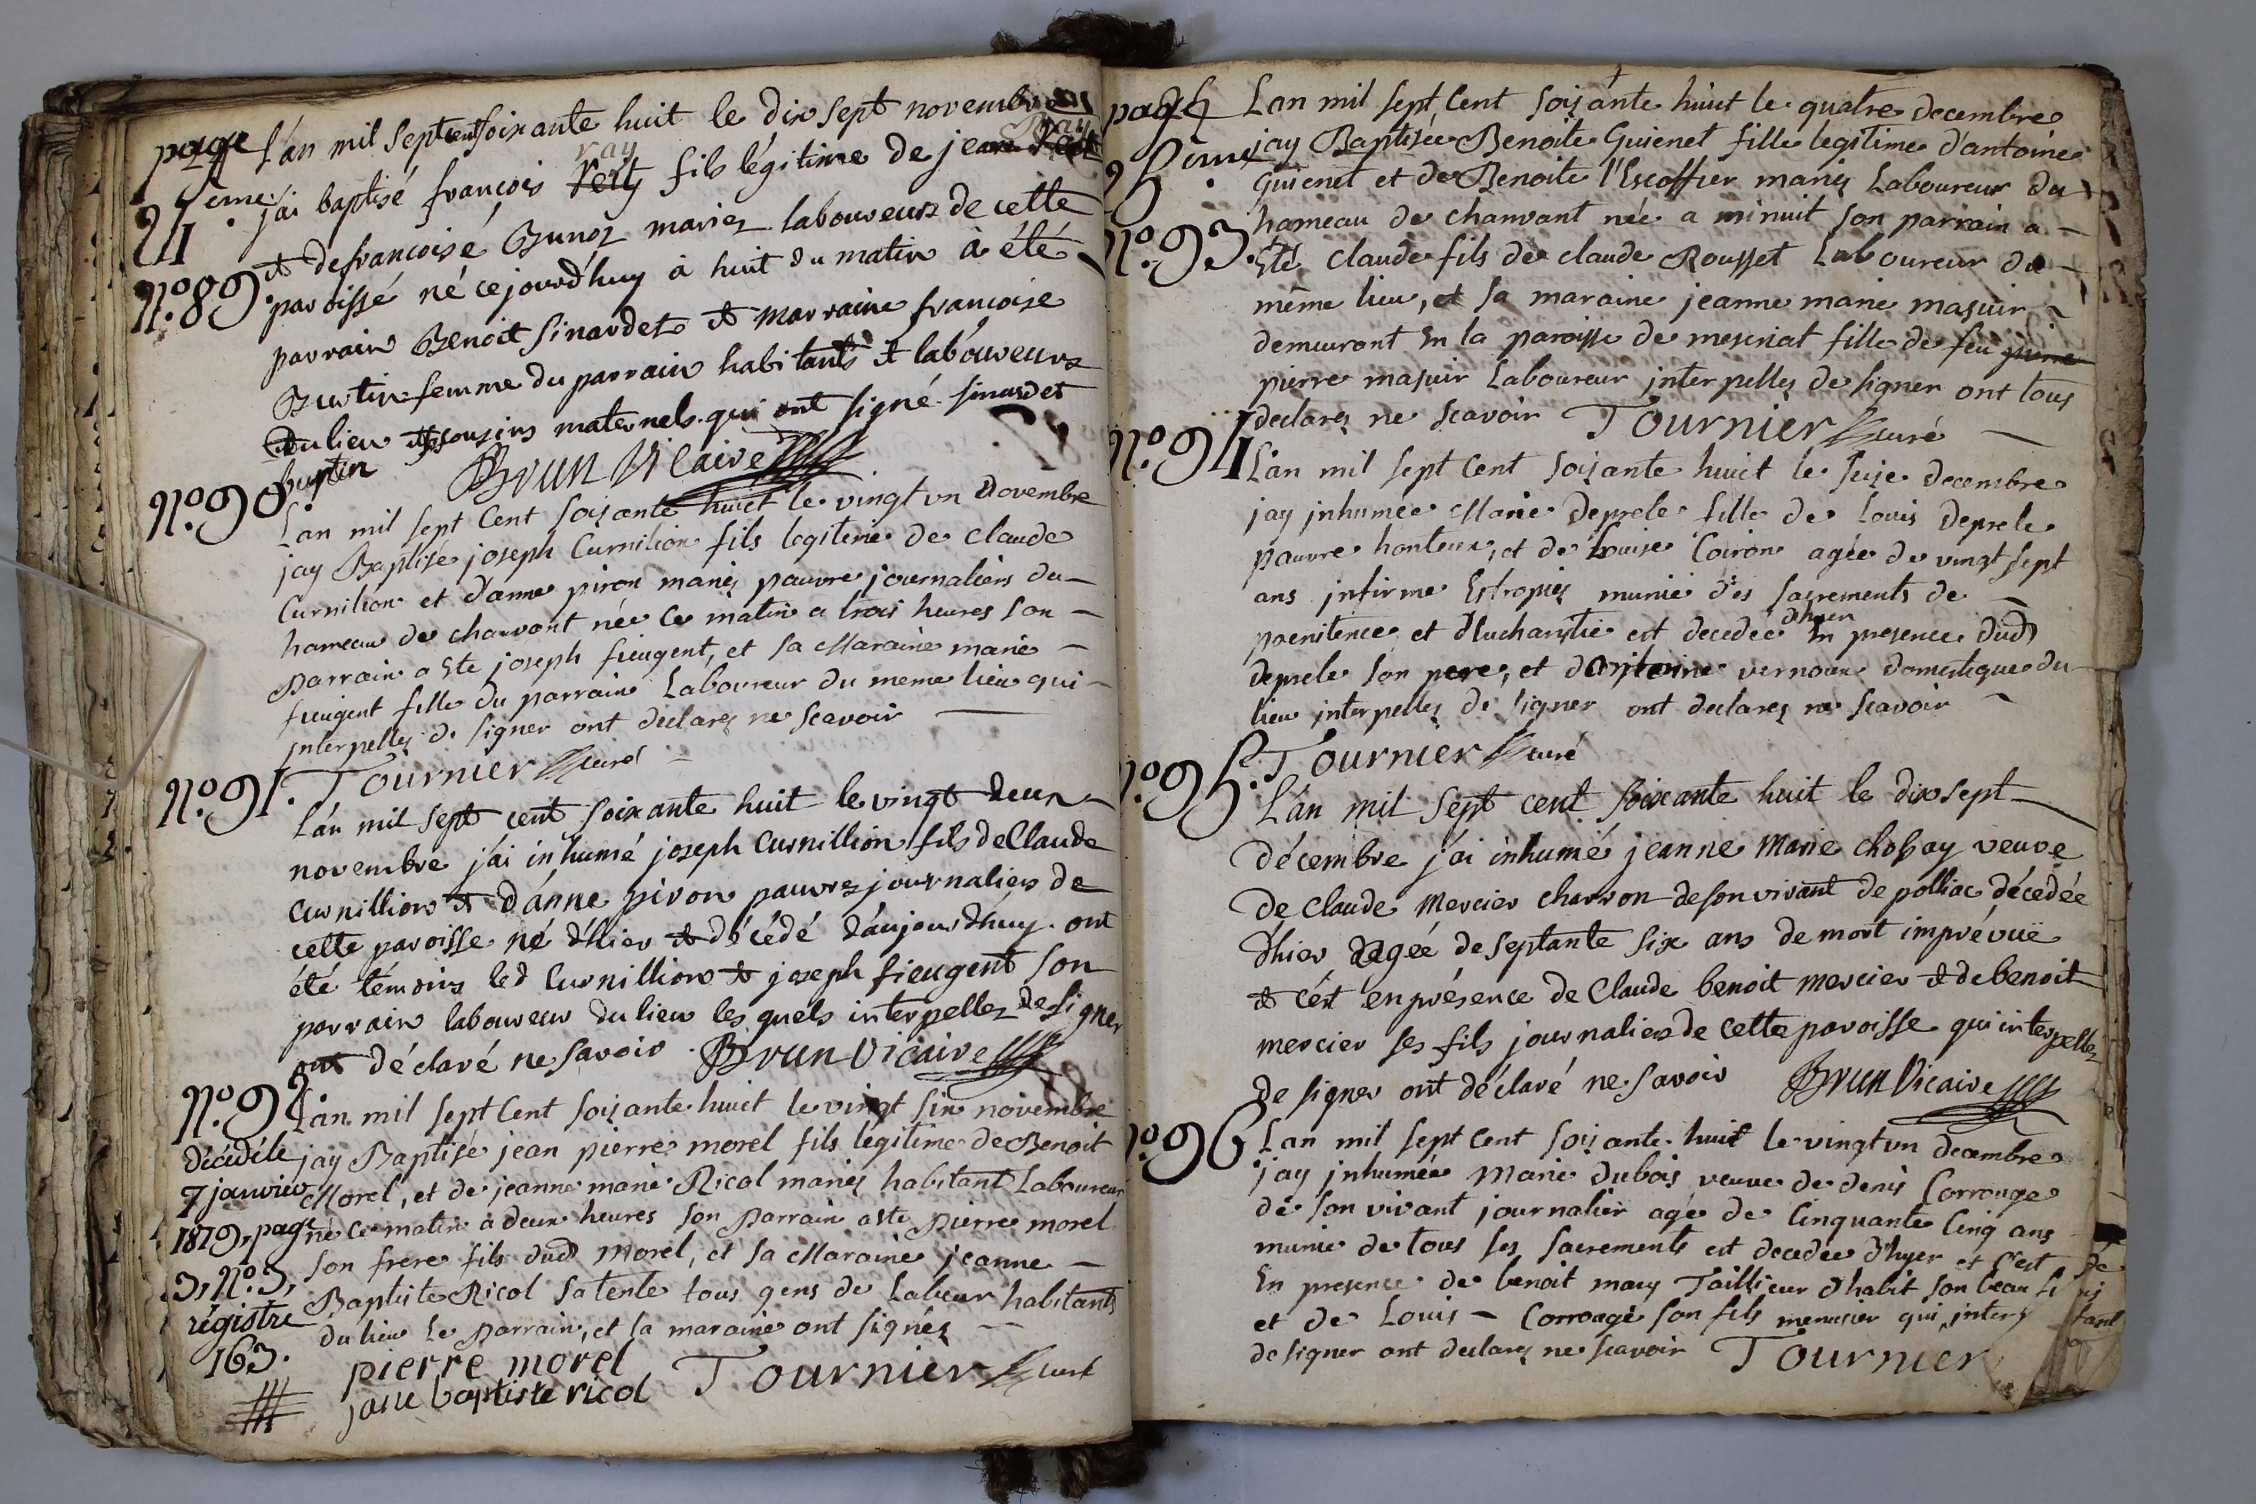 page 24eme.
L'an mil septcentsoixante huit le dix sept novembre
ray Ray
j'ai baptisé françois fils légitime de jean
N.º 89.
et defrançoise Bunoz mariez laboureurs de cette
paroissé né cejourd'huy à huit du matin à été
parrain Benoit Sinardet et marraine francoise
Burtin femme du parrain habitants et laboureurs
du lieu cousins maternels qui ont signé sinardet
burtin Brun Vicaire
N.º 90.
L'an mil sept Cent soixante huict le vingt un Novembre
jay Baptisé joseph Curnilion fils legitime de Claude
Curnilion et d'anne piron mariés pauvre journaliers du
hameau de charvant née ce matin a trois heures son
parrain a Esté joseph fieugent, et sa Maraine marie
fieugent fille du parrain Laboureur du meme lieu qui
jnterpellés de signer ont declarés ne scavoir
Tournier curé
N.º 91.
L'an mil sept cent soixante huit le vingt deux
novembre j'ai inhumé joseph Curnillion fils de Claude
Curnillion et d'anne piron pauvres journaliers de
cette paroisse né d'hier et décédé d'aujourd'huy. ont
été témoins led Curnillion et joseph fieugent son
parrain laboureur du lieu les quels interpellez de signer
ont déclaré ne savoir. Brun Vicaire
N.º 92.
L'an mil sept Cent soixante huict le vingt six novembre
décédé le
jay Baptisé jean pierre morel fils légitime de Benoit
7 janvier
Morel, et de jeanne marie Ricol mariés habitant Laboureur
1819, page
né ce matin a deux heures son parrain a esté pierre morel
3, N.º 3,
son frere fils dud Morel, et sa Maraine jeanne
régistre
Baptiste Ricol sa tente tous gens de Labeur habitants
163.
du lieu le parrain, et la maraine ont signés
pierre morel
jane baptiste ricol Tournier curé
page 25eme.
L'an mil sept Cent soixante huict le quatre decembre
jay Baptisée Benoite Guienet fille legitime d'antoine
Guienet et de Benoite l'Escoffier mariés Laboureur du
N.º 93.
hameau de charvant née a minuit son parrain a
Esté Claude fils de claude Rousset Laboureur du
même lieu, et sa maraine jeanne marie masuir
demeurant En la paroisse de meseriat fille de feu pierre
pierre masuir Laboureur jnterpellés de signer ont tous
declarés ne scavoir Tournier curé
N.º 94
L'an mil sept Cent soixante huict le seise decembre
jay jnhumée Marie Deprele fille de Louis Deprele
pauvre honteux, et de Louise Coiron agée de vingt sept
ans jnfirme Estropiés munie des sacrements de
d'hyer
poenitence et d'Eucharistie est decedée En presence dud
deprele son pere, et d'antoine vernoux domestique du
lieu jnterpellés de signer ont declarés ne scavoir
Tournier curé
N.º 95.
L'an mil sept cent soixante huit le dix sept
décembre j'ai inhumé jeanne Marie chossay veuve
de claude Mercier charron de son vivant de polliac décedée
d'hier agée de septante six ans de mort imprévuë
et c'est en présence de Claude benoit mercier et de benoit
mercier ses fils journaliers de cette paroisse qui interpellez
de signer ont déclaré ne savoir Brun Vicaire
N.º 96
L'an mil sept Cent soixante huict le vingt un decembre
jay jnhumée Marie Dubois veuve de denis Corrouge
de son vivant journalier agé de Cinquante Cinq ans
munie de tous ses sacrements est decedée d'hyer et c'est
En presence de benoit mary Taillieur d'habit son beau
et de Louis Corrouge son fils menusier qui
de signer ont declarés ne scavoir Tournier